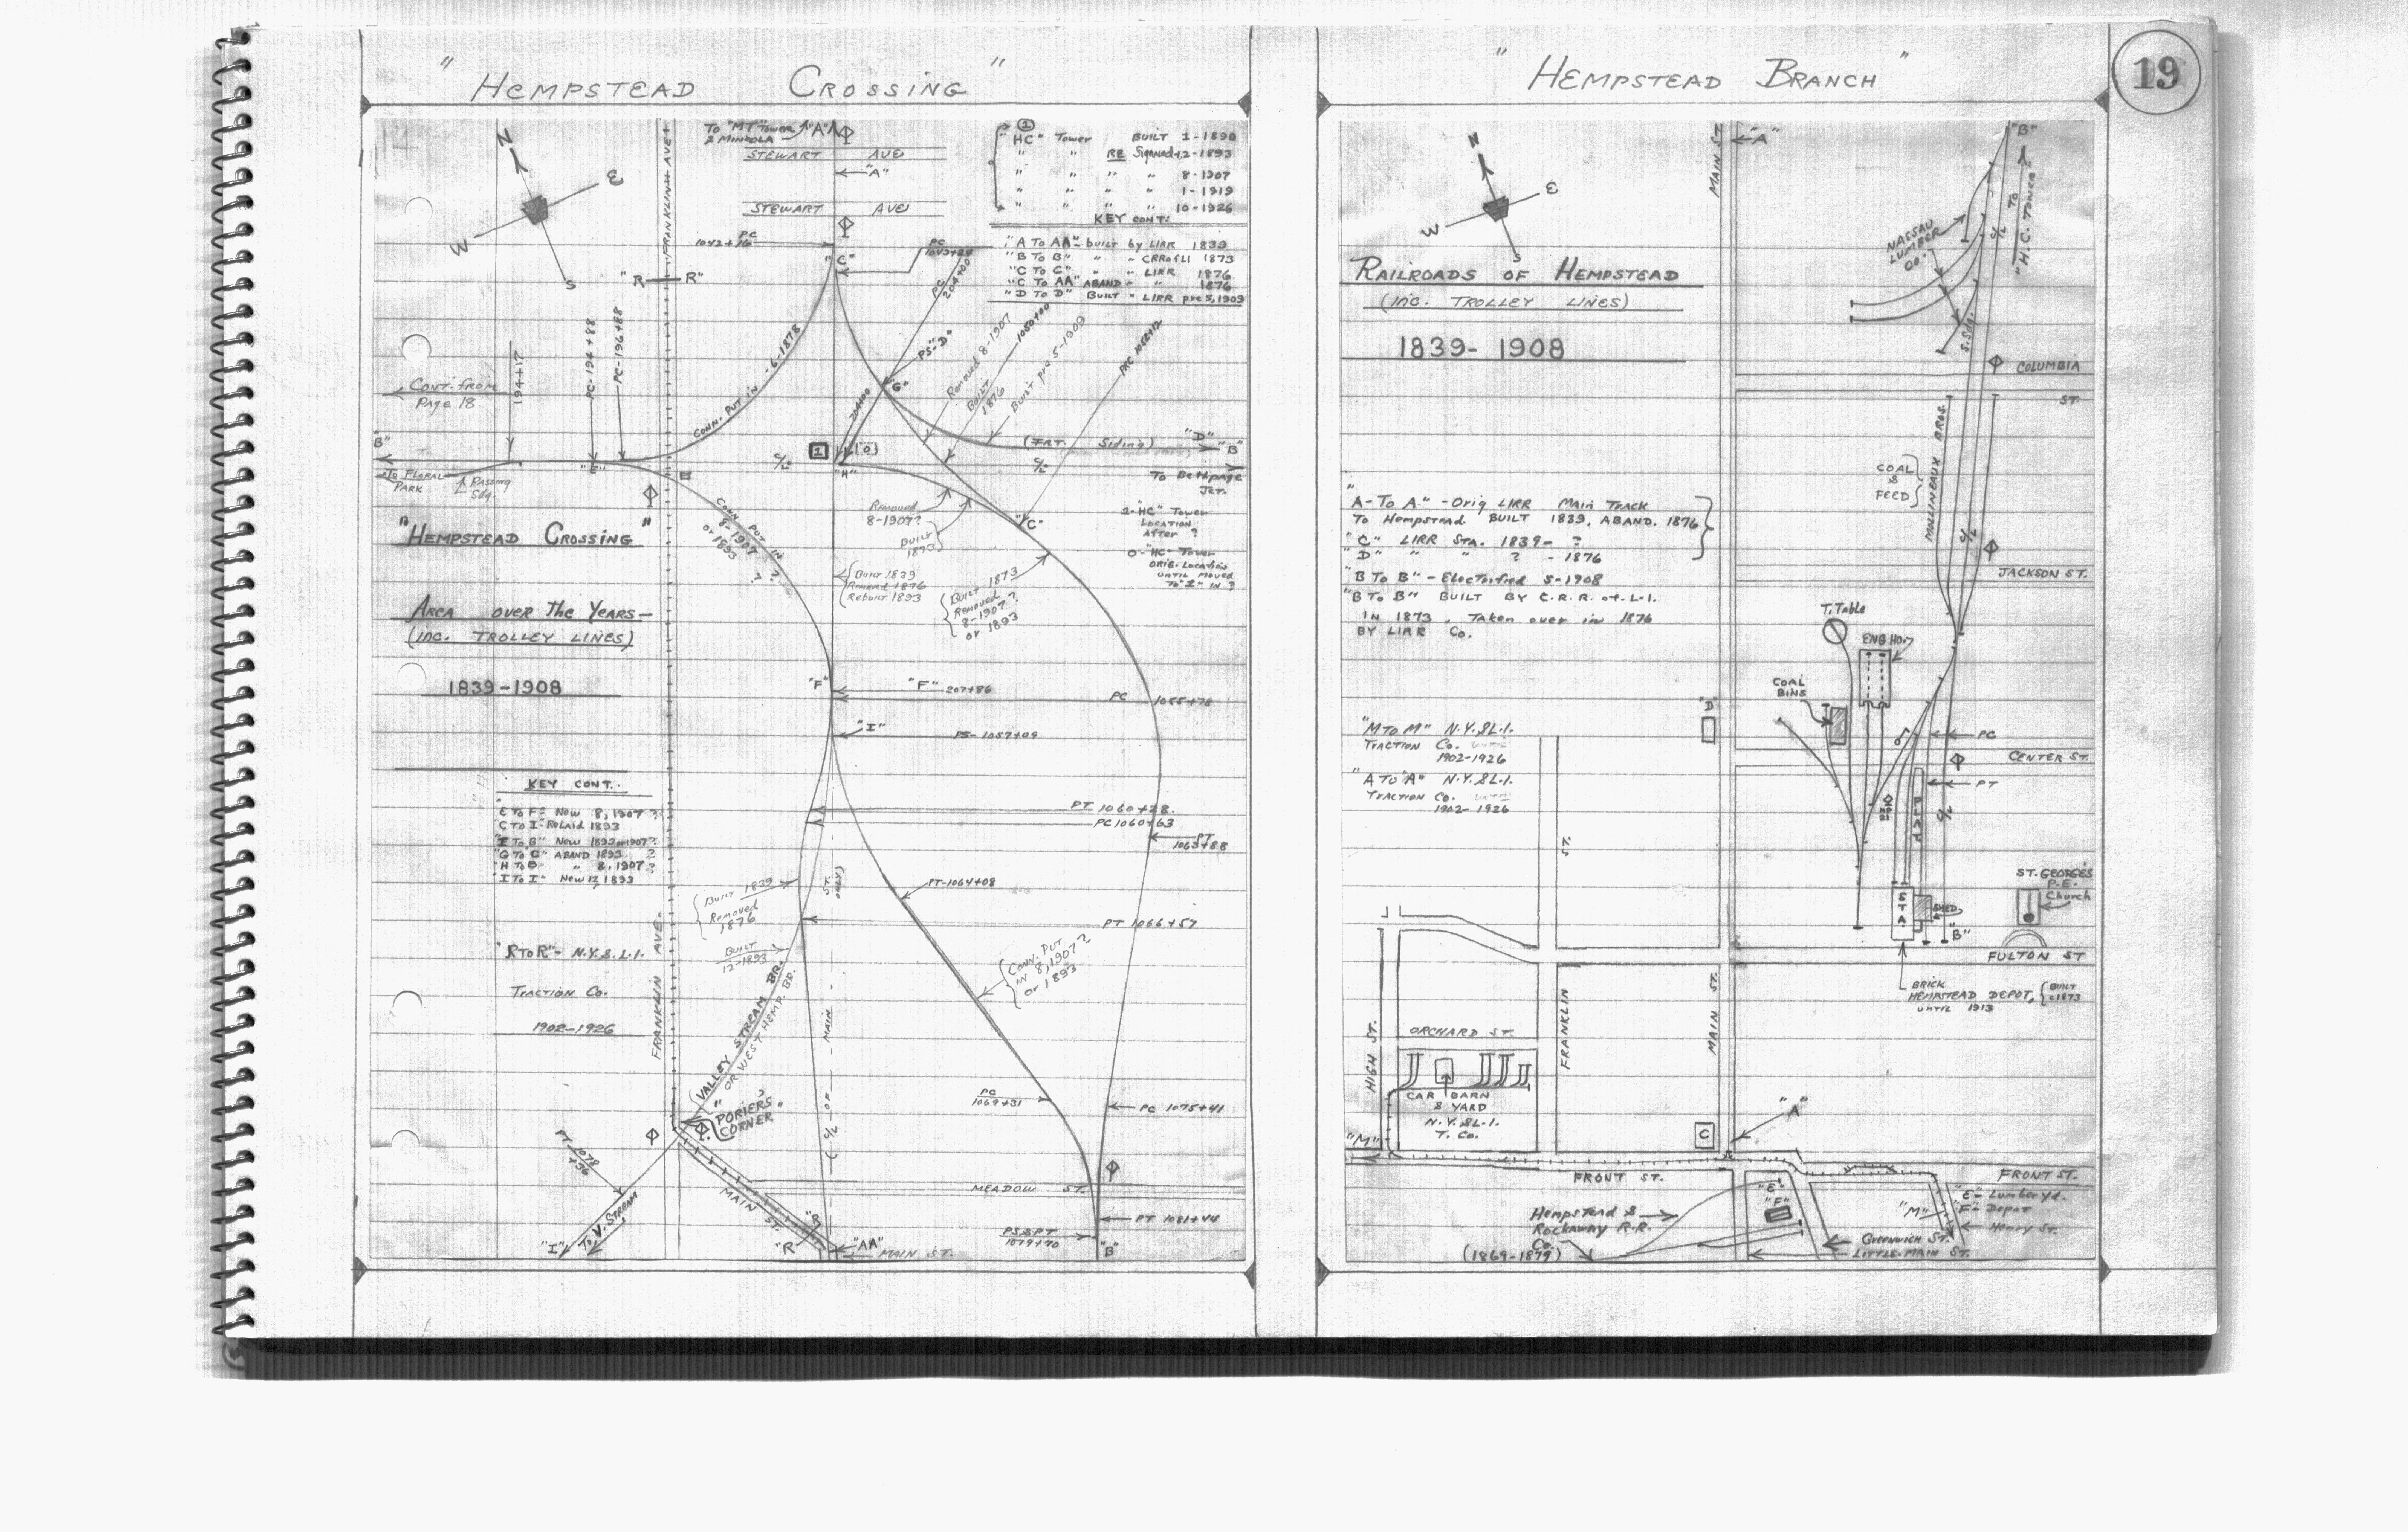 " Hempstead Crossing "
To "MT" Tower
& Mineola
"A"
STEWART AVE
"A"
STEWART AVE
FRANKLIN AVE
N
E
W
S
"R R"
1
"HC" Tower BUILT 1-1890
" " 8-1907
" " " " 1-1919
" " " " 10-1926
KEY CONT:
"A To AA" - built by LIRR 1839
"B To B" " " CRRofLI 1873
"C To C" " " LIRR 1876
"C To AA" ABAND " " 1876
"D To D" Built - LIRR pre 5,1909
PC
1042+16
"C"
PC
1043+24
PC
204+00
PS-"D"
"G"
204+00
Removed 8-1907
1050+00
BUILT
1876
Built pre 5-1909
PRC 1052+12
CONN. PUT IN -6-1878
194+17
PC-194+88
PC-196+88
Cont. from
Page 18
B"
To Floral
Park
Passing
Sdg.
"E"
C/L
1
[0]
"H"
C/L
(FRT. Siding)
"D"
"B"
To Bethpage
Jct.
1-"HC" Tower
Location
After ?
0-"HC" Tower
Orig. Location
until moved
To "1" in ?
"Hempstead Crossing"
Area over The Years-
(inc. TROLLEY LINES)
1839-1908
CONN PUT IN
8-1907
or 1893
?
?
Removed
8-1907?
BUILT
1873
Built 1839
Removed 1876
Rebuilt 1893
Built 1873
Removed
8-1907?
or 1893
"C"
"F"
"F" 207+86
PC 1055+78
"I"
PS-1057+09
KEY CONT.
"E To F" - New 8,1907 ?
"C To I" - Relaid 1893
"I To B" New 1893 or 1907?
"G To C" ABAND 1893 ?
"H To B " 8,1907 ?
"I To I" New 12,1893
PT 1060+28.
PC 1060+63
PT
1063+88
PT-1064+08
Built 1839
Removed
1876
BUILT
12-1893
PT 1066+57
Conn. Put
in 8,1907?
or 1893
"R To R" - N.Y.&L.I.
Traction Co.
1902-1926
FRANKLIN AVE.
VALLEY STREAM BR.
OR WEST HEMP. BR.
(C/L - OF - MAIN - ST. ONLY)
"PORIERS"
CORNER
?
PC
1069+31
PC 1075+41
PT-1078
+96
MEADOW ST.
MAIN ST.
PT 1081+44
PS&PT
1079+70
"I"
To V. Stream
"R
"R
"AA"
MAIN ST.
"B"
" Hempstead Branch "
19
N
E
W
S
MAIN ST.
"A"
"B"
TO
"H.C. TOWER"
NASSAU
LUMBER
CO.
C/L
S. Sdg.
Railroads of Hempstead
(inc. TROLLEY LINES)
1839- 1908
COLUMBIA
ST.
COAL
&
FEED
MOLLINEAUX BROS.
C/L
JACKSON ST.
"A-To A" -Orig LIRR Main Track
To Hempstead BUILT 1839, ABAND. 1876
"C" LIRR STA. 1839- ?
"D" " " ? - 1876
"B To B" - Electorfied 5-1908
"B To B" BUILT BY C.R.R. of L.I.
IN 1873 , Taken over in 1876
BY LIRR Co.
T. Table
ENG HO.
COAL
BINS
"D"
"M To M" N.Y.&L.I.
Traction Co.
1902-1926
"A To A" N.Y.&L.I.
Traction Co.
1902-1926
PC
CENTER ST.
PT
C/L
ST.
STA.
SHED
"B"
ST. GEORGE'S
P.E.
Church
FULTON ST
BRICK
HEMPSTEAD DEPOT,
UNTIL 1913
BUILT
c1873
HIGH ST.
ORCHARD ST.
FRANKLIN
MAIN ST.
CAR BARN
& YARD
N.Y.&L.I.
T. Co.
C
"A"
"M"
FRONT ST.
FRONT ST.
"E"
"F"
"M"
"E" - Lumber yd.
"F" - Depot
Henry St.
Hempstead &
Rockaway R.R.
Co.
(1869-1879)
Greenwich St.
LITTLE-MAIN ST.